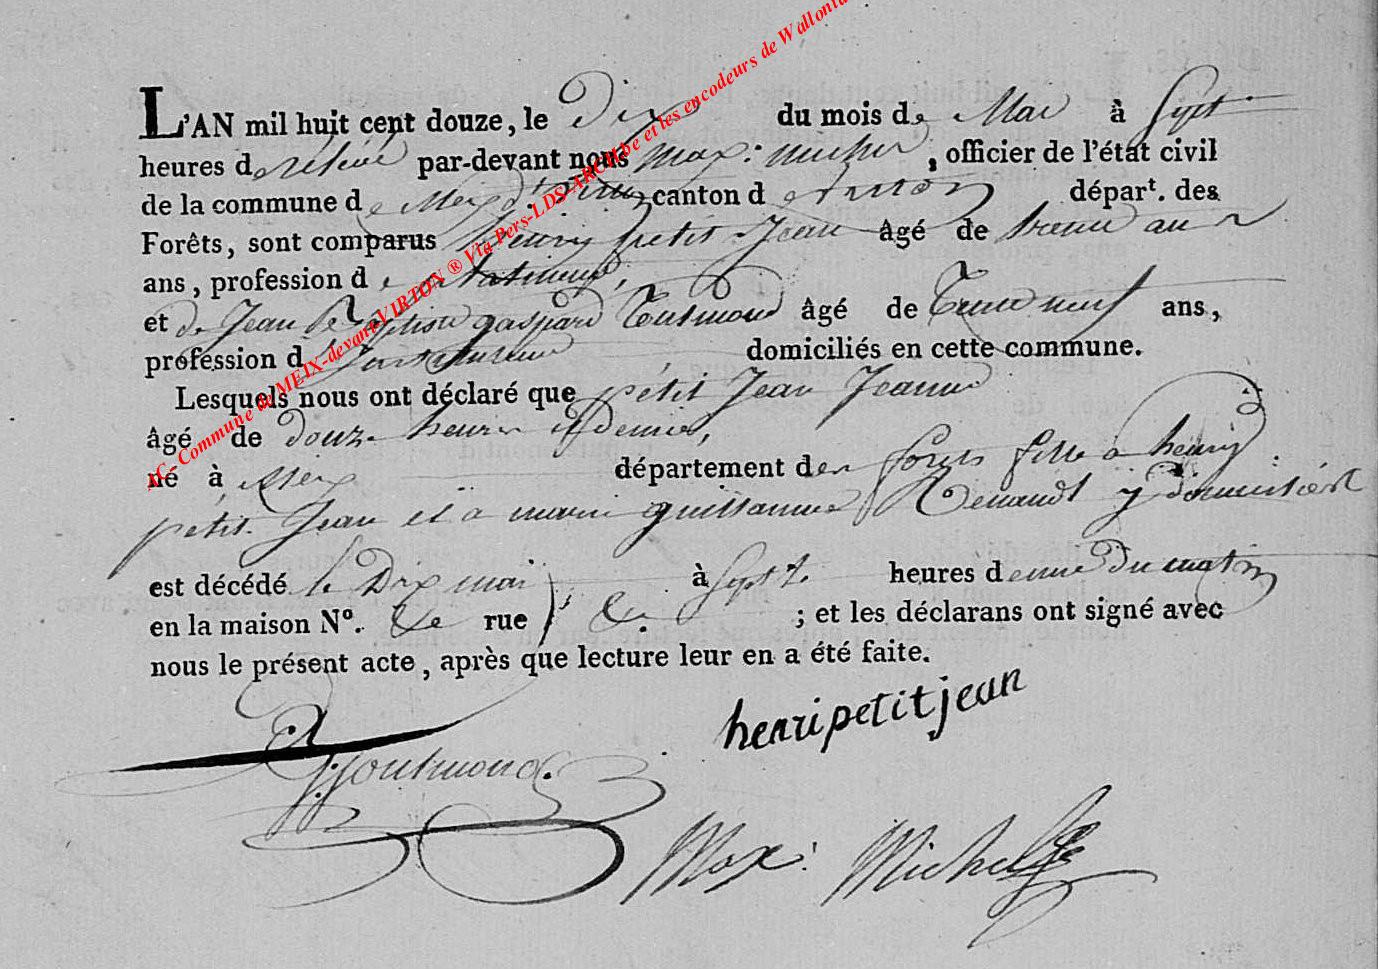 L'AN mil huit cent douze, le Dix du mois de Mai à Sept
heures de relévé par-devant nous Max: michel, officier de l'état civil
de la commune de Meix dt virton canton d virton départ. des
Forêts, sont comparus henry petit Jean âgé de trente un
ans, profession de
et de Jean Baptiste gaspard âgé de trente neuf ans,
profession d domiciliés en cette commune.
Lesquels nous ont déclaré que petit Jean Jeanne
âgé de douze heures et demie,
né à Meix département des forets fille à henry
petit Jean et à marie guillaume Renauld y domicilié
est décédé le Dix mai à Sept heures du matin
en la maison No. rue ; et les déclarans ont signé avec
nous le présent acte, après que lecture leur en a été faite.
henri petit jean
Max: Michel
AC. Commune de MEIX-devant-VIRTON ® Via Pers-LDS-ARCH.be et les encodeurs de Wallonie